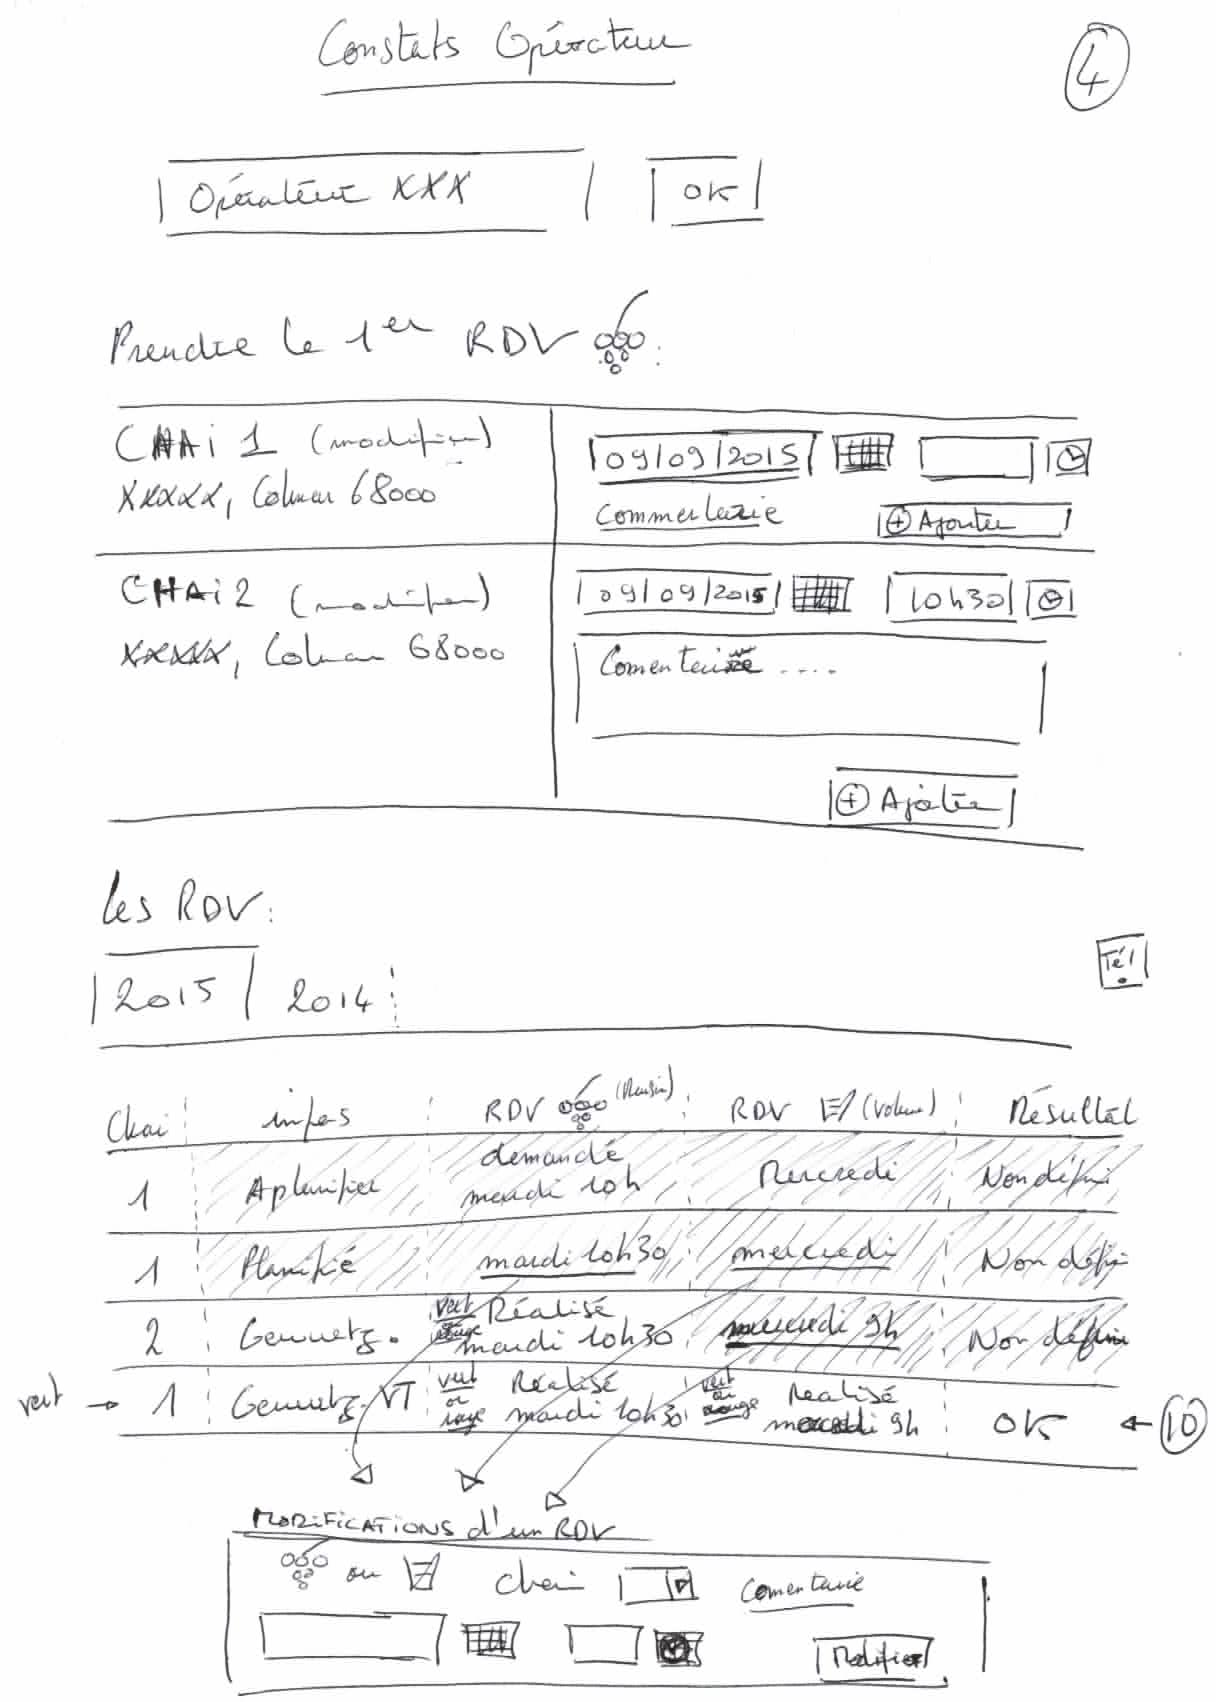 Constats Opérateur
4
Opérateur XXX
OK
Prendre le 1er RDV :
CHAi 1 (modifier)
XXXXX, Colmar 68000
09/09/2015
Commentaire
+ Ajouter
CHAi 2 (modifier)
XXXXX, Colmar 68000
09/09/2015
10h30
Comentaire ....
+ Ajouter
Les RDV :
2015
2014
Tél
Chai infos RDV (Raisin) RDV (Volume) Résultat
1 A planifier demandé mardi 10h Mercredi Non défini
1 Planifié mardi 10h30 mercredi Non défini
2 Gewurtz. vert rouge Réalisé mardi 10h30 mercredi 9h Non défini
vert → 1 Gewurtz. VT vert ou rouge Réalisé mardi 10h30 vert ou rouge Réalisé mercredi 9h OK ← 10
MODIFICATIONS d'un RDV
ou chai Comentaire
Modifier